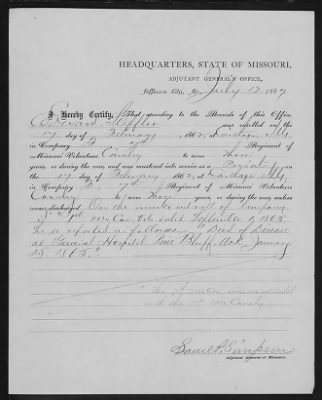 HEADQUARTERS, STATE OF MISSOURI,
ADJUTANT GENERAL'S OFFICE,
Jefferson City, Mo. July 12 1867
I Hereby Certify, That according to the Records of this Office,
was enlisted on the
17 day of February, 1862, at Carthage
in Company F 7th Regiment of
Missouri Volunteer Cavalry to serve Three
years, or during the war, and was mustered into service as a Private on
the 17 day of February 1862, at Carthage
in Company F, 7th Regiment of Missouri Volunteer
Cavalry to serve Three years, or during the war, unless
sooner discharged. On the muster out roll of Company
Mo Cav Vols dated September 1865
he is reported as follows: "Died of Disease
at General Hospital Pine Bluff, Ark, January
15, 1865."
with the 1st Mo Cavalry
Saml P. Simpson
Adjutant General of Missouri.